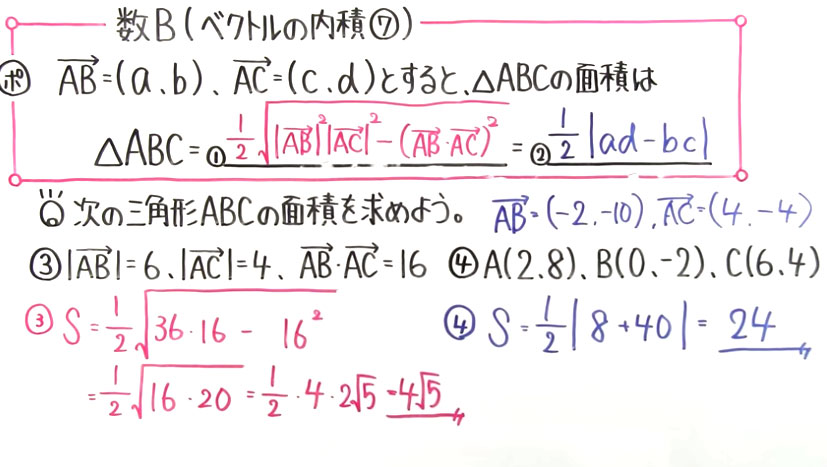 数B(ベクトルの内積⑦)
ポ AB→=(a、b)、AC→=(c、d)とすると、△ABCの面積は
△ABC=①1/2√(|AB→|²|AC→|²-(AB→·AC→)²)=②1/2|ad-bc|
次の三角形ABCの面積を求めよう。 AB→=(-2、-10)、AC→=(4、-4)
③|AB→|=6、|AC→|=4、AB→·AC→=16 ④A(2、8)、B(0、-2)、C(6、4)
③ S=1/2√(36·16 - 16²) ④ S=1/2|8+40|=24
=1/2√(16·20)=1/2·4·2√5=4√5